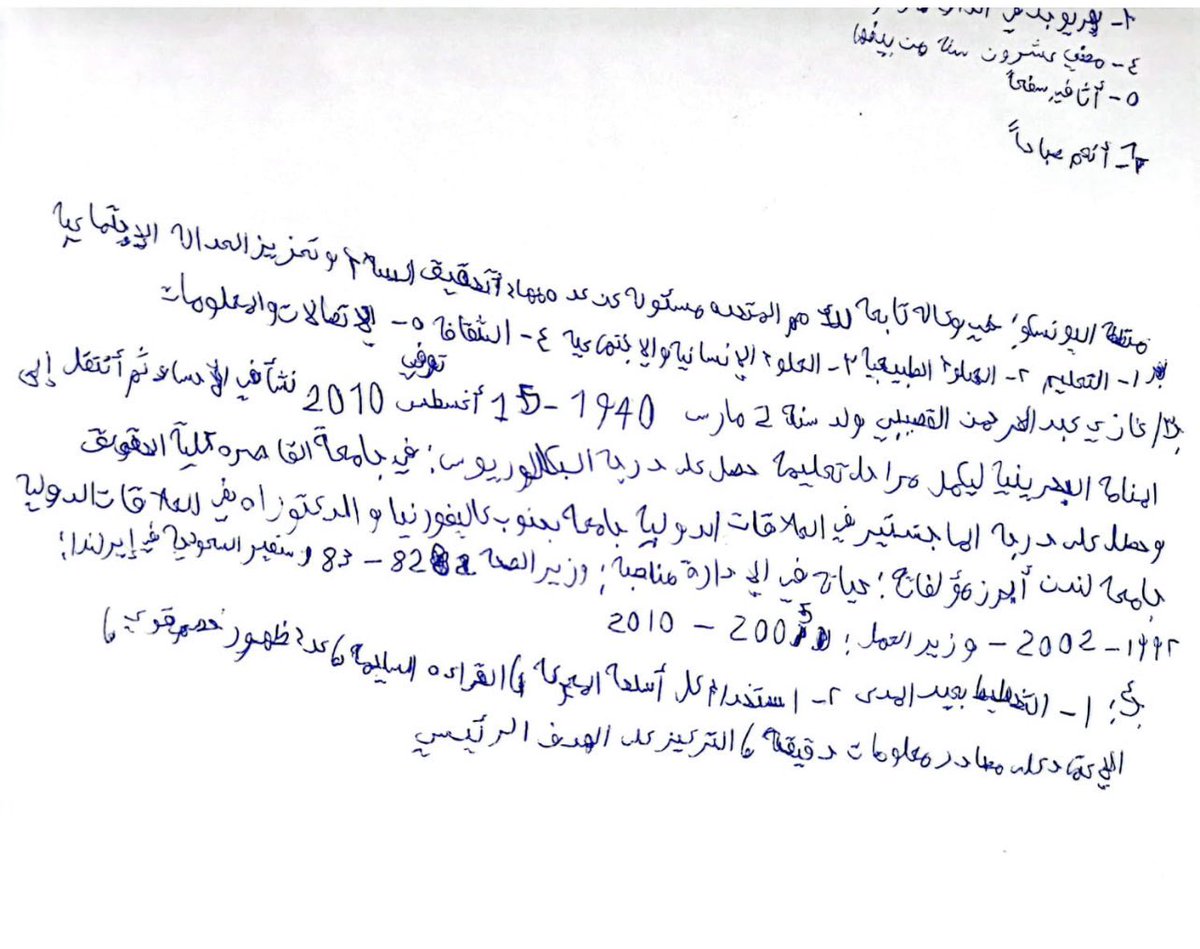 ٤- مضي عشرون سنة من بيفوا
٥- أثافي سفعاً
٦- أنعم صباحاً
منظمة اليونسكو: هي وكالة تابعة للأمم المتحده مسئولة عن عدة مهام: تحقيق السلام وتعزيز العدالة الإجتماعية
١- التعليم ٢- العلوم الطبيعية ٣- العلوم الإنسانية والإجتماعية ٤- الثقافة ٥- الاتصالات والمعلومات
غازي عبد الرحمن القصيبي ولد سنة 2 مارس 1940 - توفي 15 أغسطس 2010 نشأ في الأحساء ثم أنتقل إلى
المنامة البحرينية ليكمل مراحل تعليمه حصل على درجة البكالوريوس: في جامعة القاهره كلية الحقوق
وحصل على درجة الماجستير في العلاقات الدولية جامعة بجنوب كاليفورنيا والدكتوراه في العلاقات الدولية
جامعة لندن أبرز مؤلفاته: حياة في الإدارة مناصبه: وزير الصحة 82 - 83 وسفير السعودية في إيرلندا:
١٩٩٢ - 2002 - وزير العمل: 2005 - 2010
ج: ١- التخطيط بعيد المدى ٢- استخدام كل أسلحة المعركة، القراءه السليمة، عدم ظهور خصم قوي،
الإعتماد على مصادر معلومات دقيقة، التركيز على الهدف الرئيسي